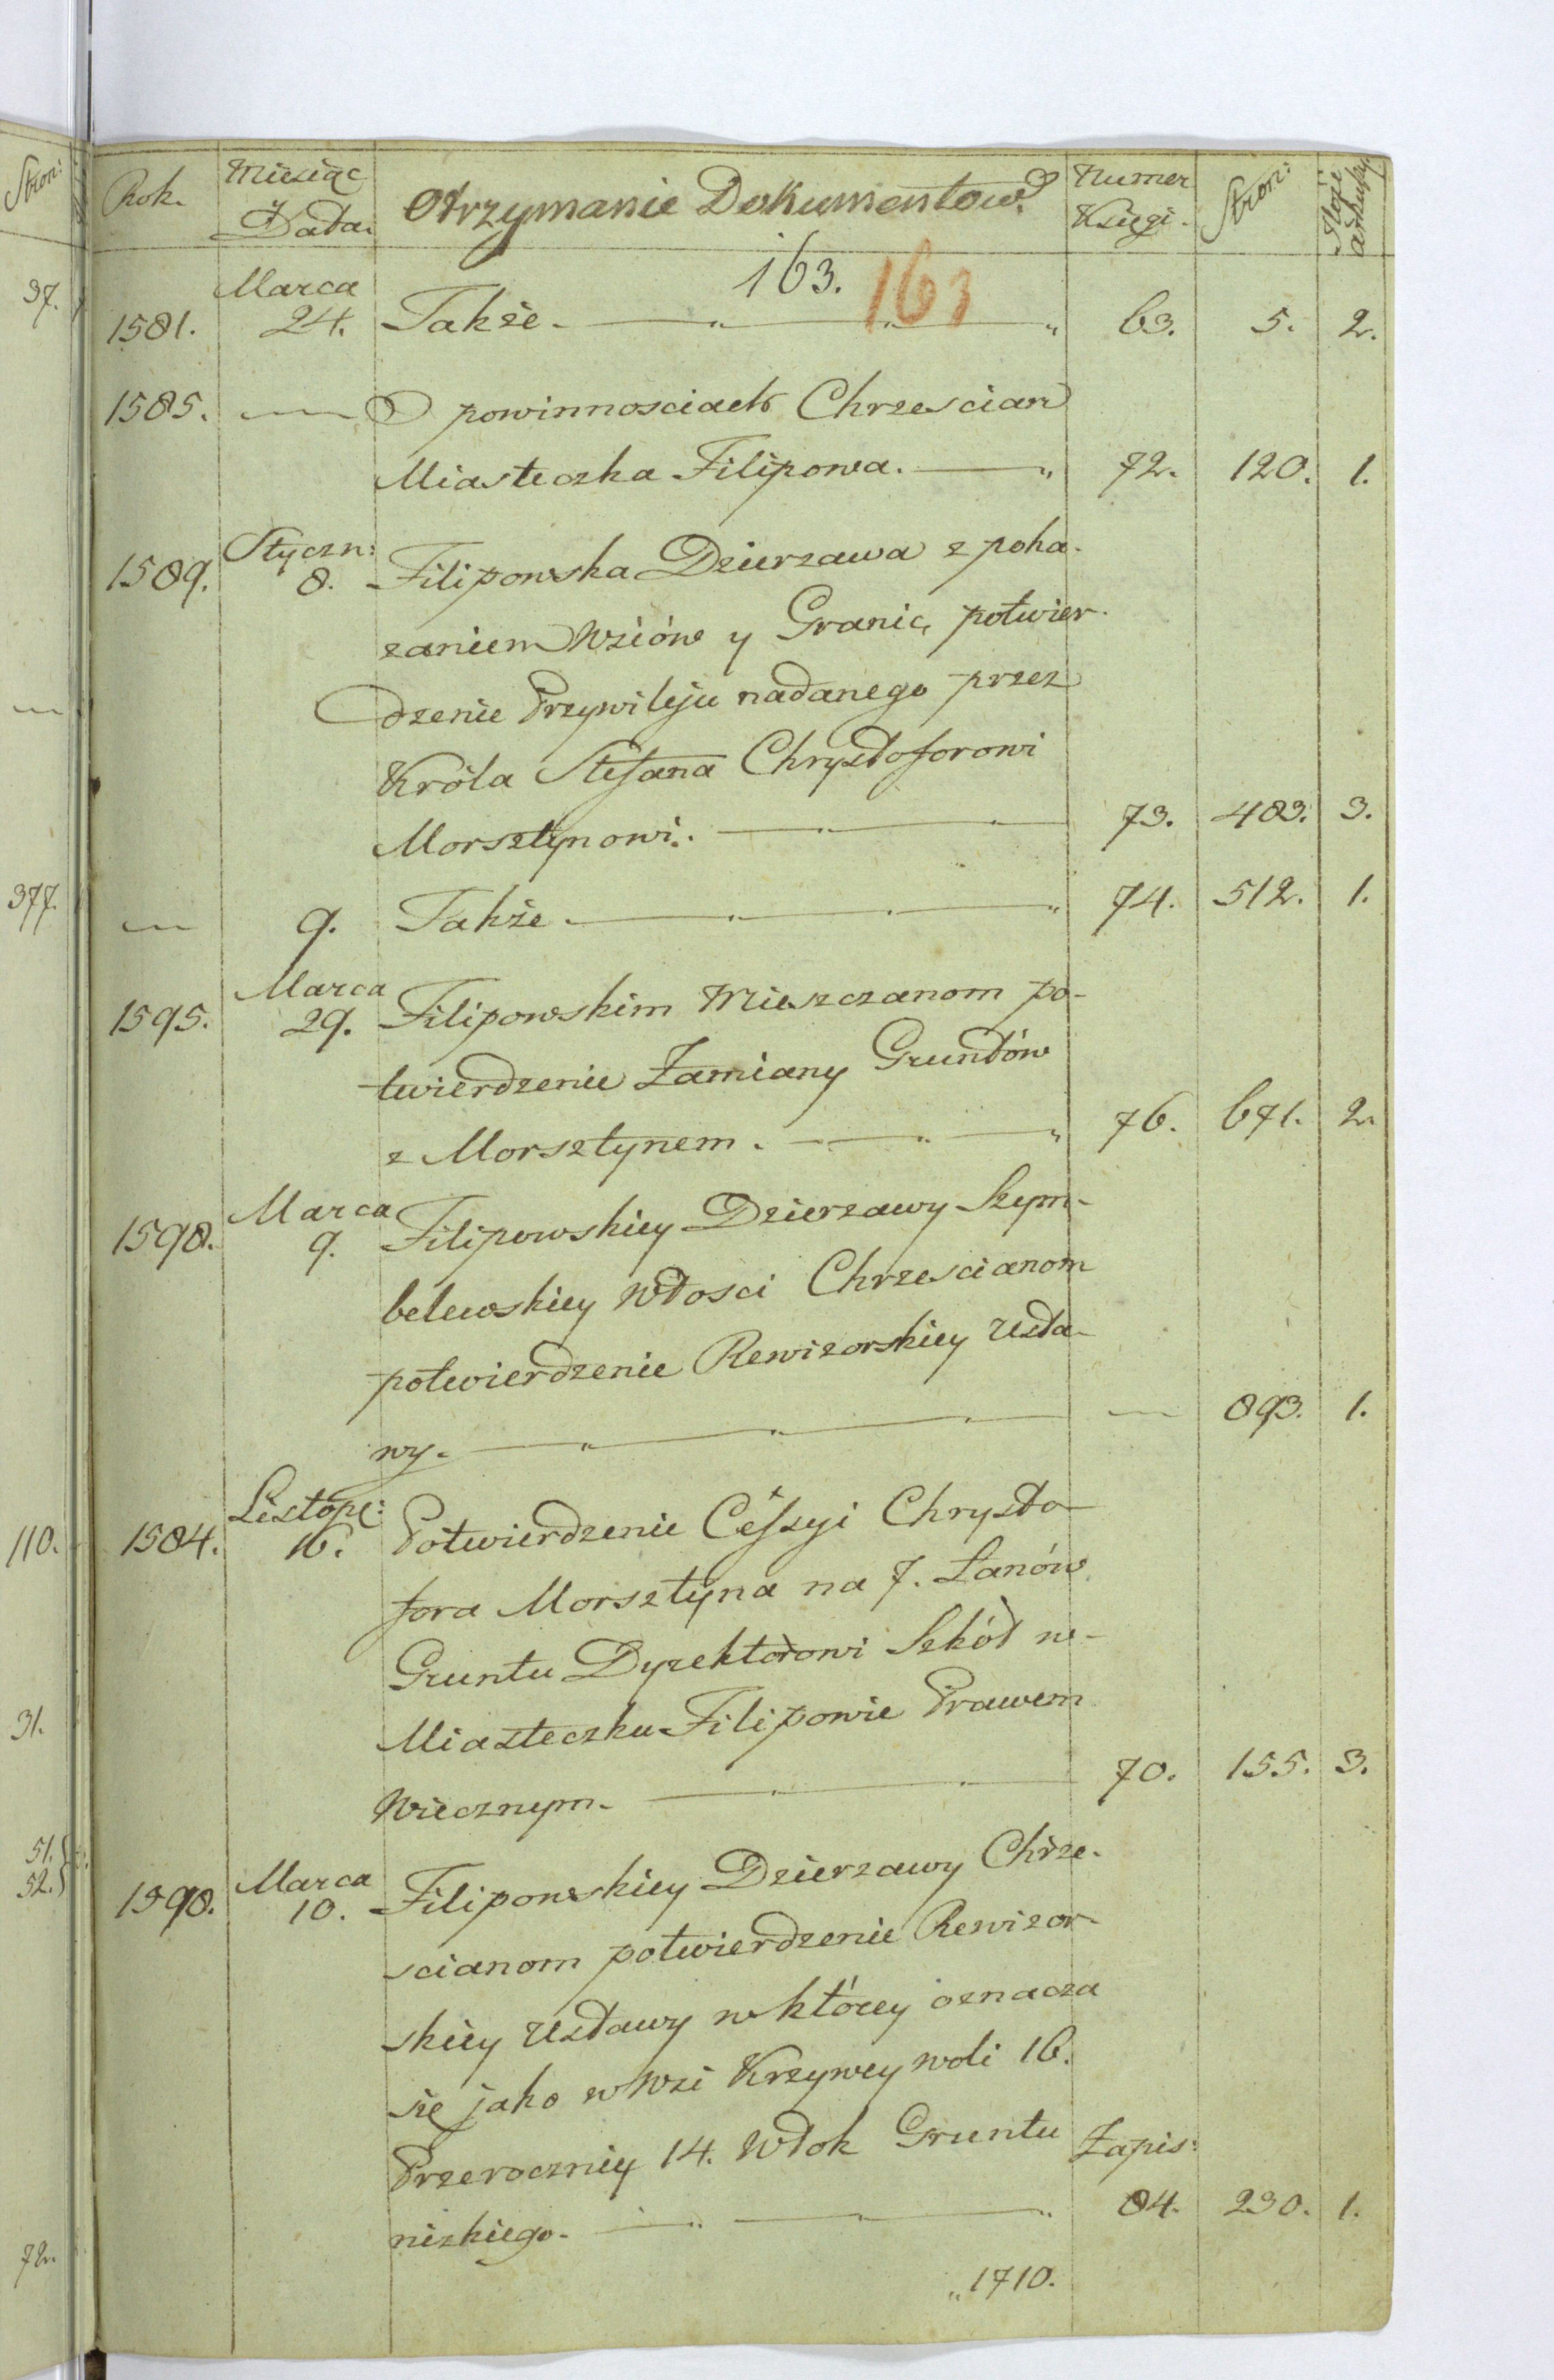 Rok. Miesiąc Otrzymanie Dokumentow. Numer Stron: Ilość
i Data. Księgi. arkuszy
163. 163
Marca
1581. 24. Także. 63. 5. 2.
1585. — O powinnosciach Chrzescian
Miasteczka Filipowa. 72. 120. 1.
Styczn:
1589. 8. Filipowska Dzierzawa z poka-
zaniem Wsiów y Granic, potwier-
dzenie Przywileju nadanego przez
Króla Stefana Chrysztoforowi
Morsztynowi. 73. 483. 3.
— 9. Także. 74. 512. 1.
Marca
1595. 29. Filipowskim Mieszczanom po-
twierdzenie Zamiany Gruntów
z Morsztynem. 76. 671. 2.
Marca
1598. 9. Filipowskiey Dzierzawy Szym-
belewskiey Włosci Chrzescianom
potwierdzenie Rewizorskiey Usta-
wy. — 893. 1.
Listop:
1584. 16. Potwierdzenie Cessyi Chryszto-
fora Morsztyna na 7. Łanów
Gruntu Dyrektorowi Szkół w-
Miasteczku Filipowie Prawem
Wiecznym. 70. 155. 3.
Marca
1598. 10. Filipowskiey Dzierzawy Chrze-
scianom potwierdzenie Rewizor-
skiey Ustawy w którey oznacza
się jako w Wsi Krzywey woli 16.
Przeroczniey 14. Włok Gruntu Zapis:
nizkiego. 84. 230. 1.
„1710.
Stron:
37.
—
377.
110.
31.
51.
52.
72.